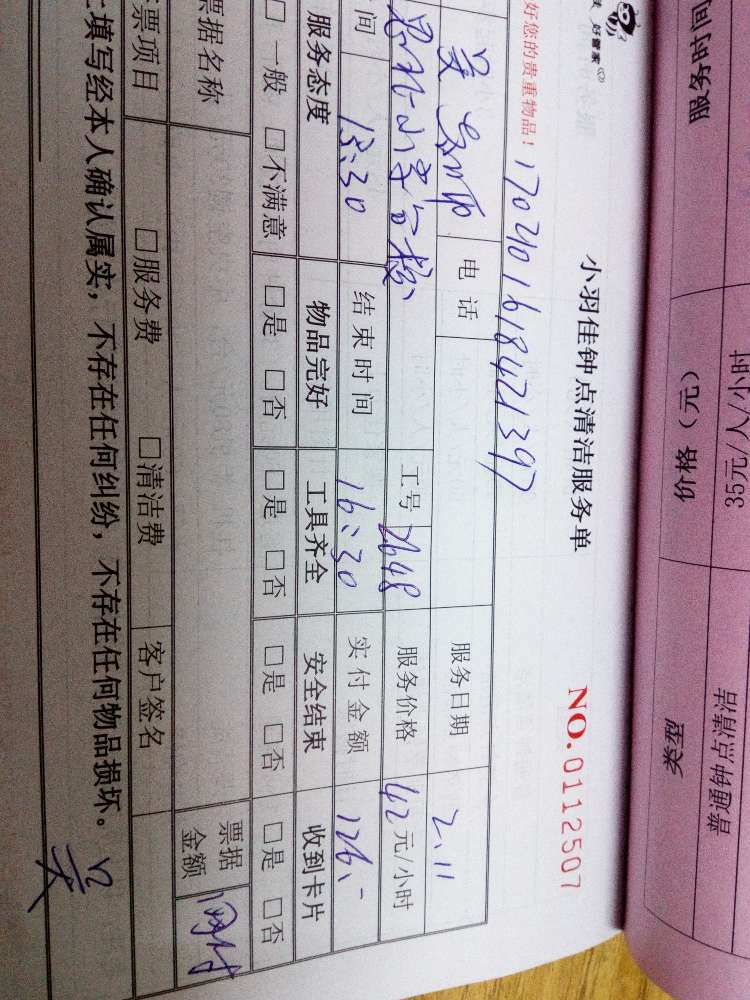 好管家
好您的贵重物品！
17020161842 1397
小羽佳钟点清洁服务单
NO.0112507
吴
电话
服务日期
2.11
小学
工号
2648
服务价格
42元/小时
间
13:30
结束时间
16:30
实付金额
126.-
服务态度
物品完好
工具齐全
安全结束
收到卡片
□一般 □不满意
□是 □否
□是 □否
□是 □否
□是 □否
票据名称
票据金额
网付
票项目
□服务费
□清洁费
客户签名
填写经本人确认属实，不存在任何纠纷，不存在任何物品损坏。
吴
服务时间
价格（元）
类型
35元/人/小时
普通钟点清洁